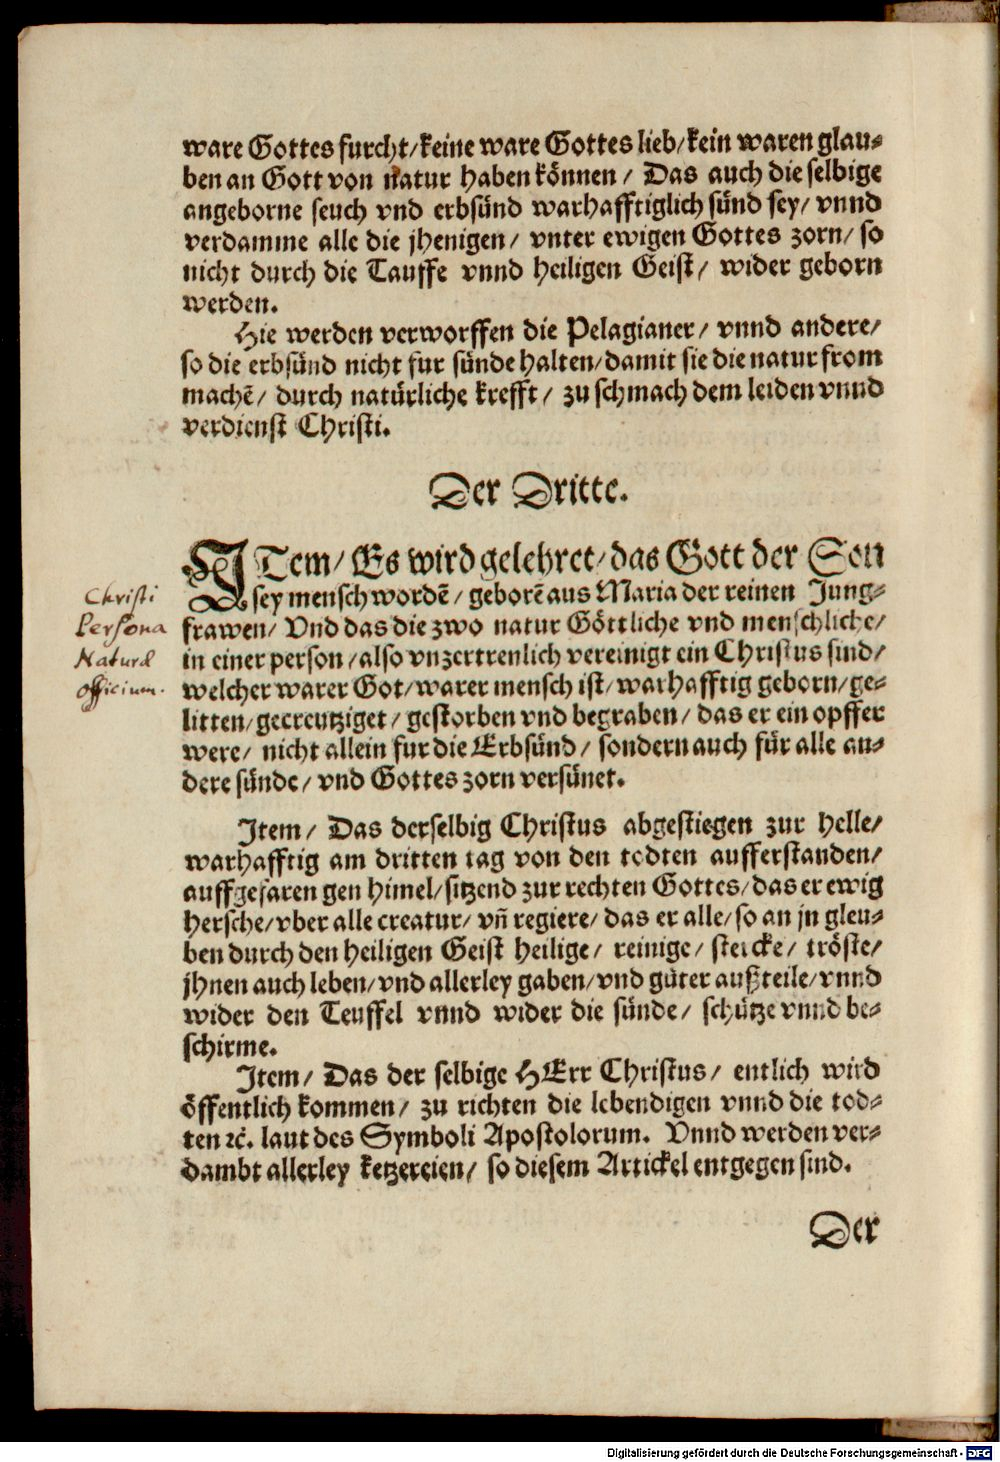 ware Gottes furcht/ keine ware Gottes lieb/ kein waren glau-
ben an Gott von natur haben können/ Das auch die selbige
angeborne seuch vnd erbsünd warhafftiglich sünd sey/ vnnd
verdamme alle die jhenigen/ vnter ewigen Gottes zorn/ so
nicht durch die Tauffe vnnd heiligen Geist/ wider geborn
werden.
Hie werden verworffen die Pelagianer/ vnnd andere/
so die erbsünd nicht fur sünde halten/ damit sie die natur from
machē/ durch natürliche krefft/ zu schmach dem leiden vnnd
verdienst Christi.
Der Dritte.
ITem/ Es wird gelehret/ das Gott der Son
sey mensch wordē/ geborē aus Maria der reinen Jung-
frawen/ Vnd das die zwo natur Göttliche vnd menschliche/
in einer person/ also vnzertrenlich vereinigt ein Christus sind/
welcher warer Got/ warer mensch ist/ warhafftig geborn/ ge-
litten/ gecreutziget/ gestorben vnd begraben/ das er ein opffer
were/ nicht allein fur die Erbsünd/ sondern auch für alle an-
dere sünde/ vnd Gottes zorn versünet.
Christi
Persona
Naturæ
officium.
Item/ Das derselbig Christus abgestiegen zur helle/
warhafftig am dritten tag von den todten aufferstanden/
auffgefaren gen himel/ sitzend zur rechten Gottes/ das er ewig
hersche/ vber alle creatur/ vñ regiere/ das er alle/ so an jn gleu-
ben durch den heiligen Geist heilige/ reinige/ stercke/ tröste/
jhnen auch leben/ vnd allerley gaben/ vnd güter außteile/ vnnd
wider den Teuffel vnnd wider die sünde/ schütze vnnd be-
schirme.
Item/ Das der selbige HErr Christus/ entlich wird
öffentlich kommen/ zu richten die lebendigen vnnd die tod-
ten ꝛc. laut des Symboli Apostolorum. Vnnd werden ver-
dambt allerley ketzereien/ so diesem Artickel entgegen sind.
Der
Digitalisierung gefördert durch die Deutsche Forschungsgemeinschaft - DFG